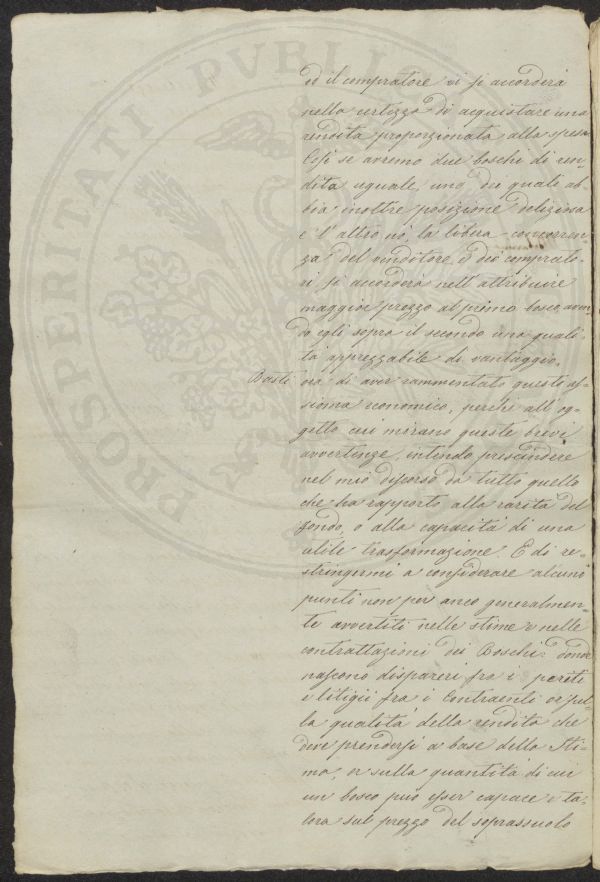 ed il compratore vi si accorderà
nella certezza di acquistare una
rendita proporzionata alla spesa
Così se avremo due boschi di ren=
dita uguale, uno dei quali ab=
bia inoltre posizione deliziosa
e l'altro nò, la libera concorren=
za del venditore, e dei comprato=
ri si accorderà nell'attribuire
maggior prezzo al primo bosco, aven=
do egli sopra il secondo una quali=
tà apprezzabile di vantaggio.
Basti ora di aver rammentato questo as=
sioma economico, perchè all'og=
getto cui mirano queste brevi
avvertenze, intendo prescindere
nel mio discorso da tutto quello
che ha rapporto alla rarità del
fondo, o alla capacità di una
utile trasformazione. E di re=
stringermi a considerare alcuni
punti non per anco generalmen=
te avvertiti nelle stime e nelle
contrattazioni dei Boschi: donde
nascono dispareri fra i periti
e litigii fra i Contraenti or sul=
la qualità della rendita che
deve prendersi a base della Sti=
ma, or sulla quantità di cui
un bosco può esser capace e ta=
lora sul prezzo del soprassuolo
PROSPERITATI PVBLI